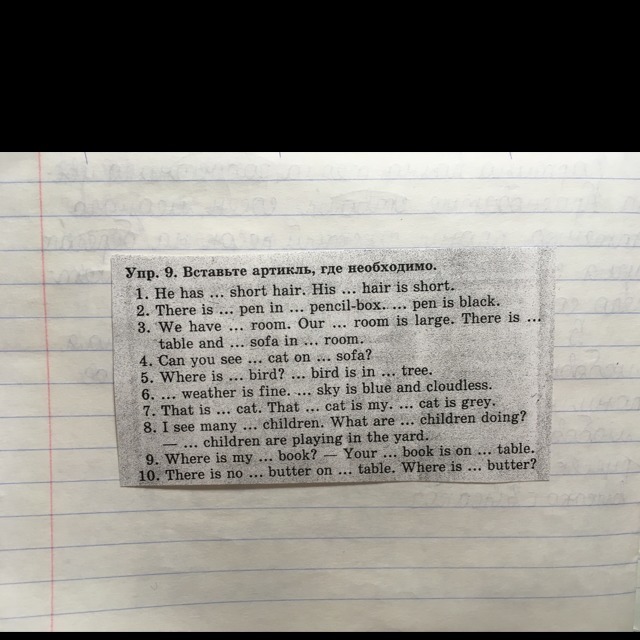 Упр. 9. Вставьте артикль, где необходимо.
1. He has ... short hair. His ... hair is short.
2. There is ... pen in ... pencil-box. ... pen is black.
3. We have ... room. Our ... room is large. There is ...
table and ... sofa in ... room.
4. Can you see ... cat on ... sofa?
5. Where is ... bird? ... bird is in ... tree.
6. ... weather is fine. ... sky is blue and cloudless.
7. That is ... cat. That ... cat is my. ... cat is grey.
8. I see many ... children. What are ... children doing?
— ... children are playing in the yard.
9. Where is my ... book? — Your ... book is on ... table.
10. There is no ... butter on ... table. Where is ... butter?